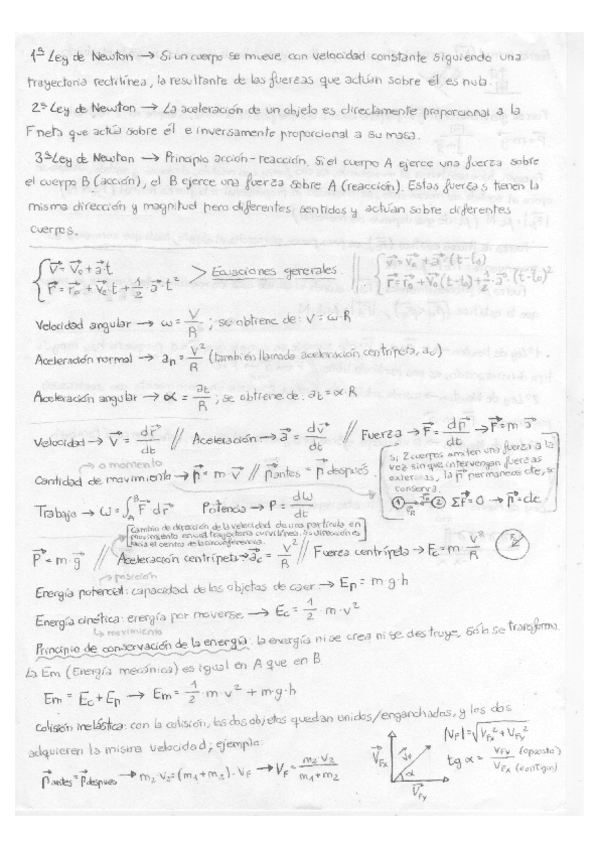 1ª Ley de Newton → Si un cuerpo se mueve con velocidad constante siguiendo una
trayectoria rectilínea, la resultante de las fuerzas que actúan sobre él es nula.
2ª Ley de Newton → La aceleración de un objeto es directamente proporcional a la
F neta que actúa sobre él e inversamente proporcional a su masa.
3ª Ley de Newton → Principio acción-reacción. Si el cuerpo A ejerce una fuerza sobre
el cuerpo B (acción), el B ejerce una fuerza sobre A (reacción). Estas fuerzas tienen la
misma dirección y magnitud pero diferentes sentidos y actúan sobre diferentes
cuerpos.
{ v⃗ = v⃗₀ + a⃗·t > Ecuaciones generales. // { v⃗ = v⃗₀ + a⃗·(t-t₀)
{ r⃗ = r⃗₀ + v⃗₀·t + 1/2 a⃗·t² // { r⃗ = r⃗₀ + v⃗₀(t-t₀) + 1/2·a⃗·(t-t₀)²
Velocidad angular → ω = V/R ; se obtiene de: V = ω·R
Aceleración normal → aₙ = V²/R (también llamada aceleración centrípeta, a_c).
Aceleración angular → α = a_t/R ; se obtiene de: a_t = α·R
Velocidad → V⃗ = dr⃗/dt // Aceleración → a⃗ = dv⃗/dt // Fuerza → F⃗ = dp⃗/dt → F⃗ = m·a⃗
→ o momento
Cantidad de movimiento → p⃗ = m·v⃗ // p⃗antes = p⃗después.
Si 2 cuerpos emiten una fuerza a la
vez sin que intervengan fuerzas
externas, la p⃗ permanece cte, se
conserva.
① ② ΣF⃗ = 0 → p⃗ = cte
Trabajo → W = ∫_A^B F⃗ dr⃗ Potencia → P = dW/dt
Cambio de dirección de la velocidad de una partícula en
movimiento en una trayectoria curvilínea. Su dirección es
hacia el centro de la circunferencia.
P⃗ = m·g⃗ // Aceleración centrípeta → a⃗_c = V²/R // Fuerza centrípeta → F_c = m·V²/R
→ posición
Energía potencial: capacidad de los objetos de caer → Ep = m·g·h
Energía cinética: energía por moverse → Ec = 1/2·m·v²
↳ movimiento
Principio de conservación de la energía: la energía ni se crea ni se destruye, sólo se transforma
La Em (Energía mecánica) es igual en A que en B.
Em = Ec + Ep → Em = 1/2·m·v² + m·g·h
Colisión inelástica: con la colisión, los dos objetos quedan unidos/enganchados, y los dos
adquieren la misma velocidad; ejemplo:
p⃗antes = p⃗después → m₂ v₂ = (m₁+m₂)·V_F → V_F = m₂ v₂/m₁+m₂
V⃗Fx V⃗F α V⃗Fy
|V_F| = √V_Fx² + V_Fy²
tg α = V_Fy (opuesto)/V_Fx (contiguo)